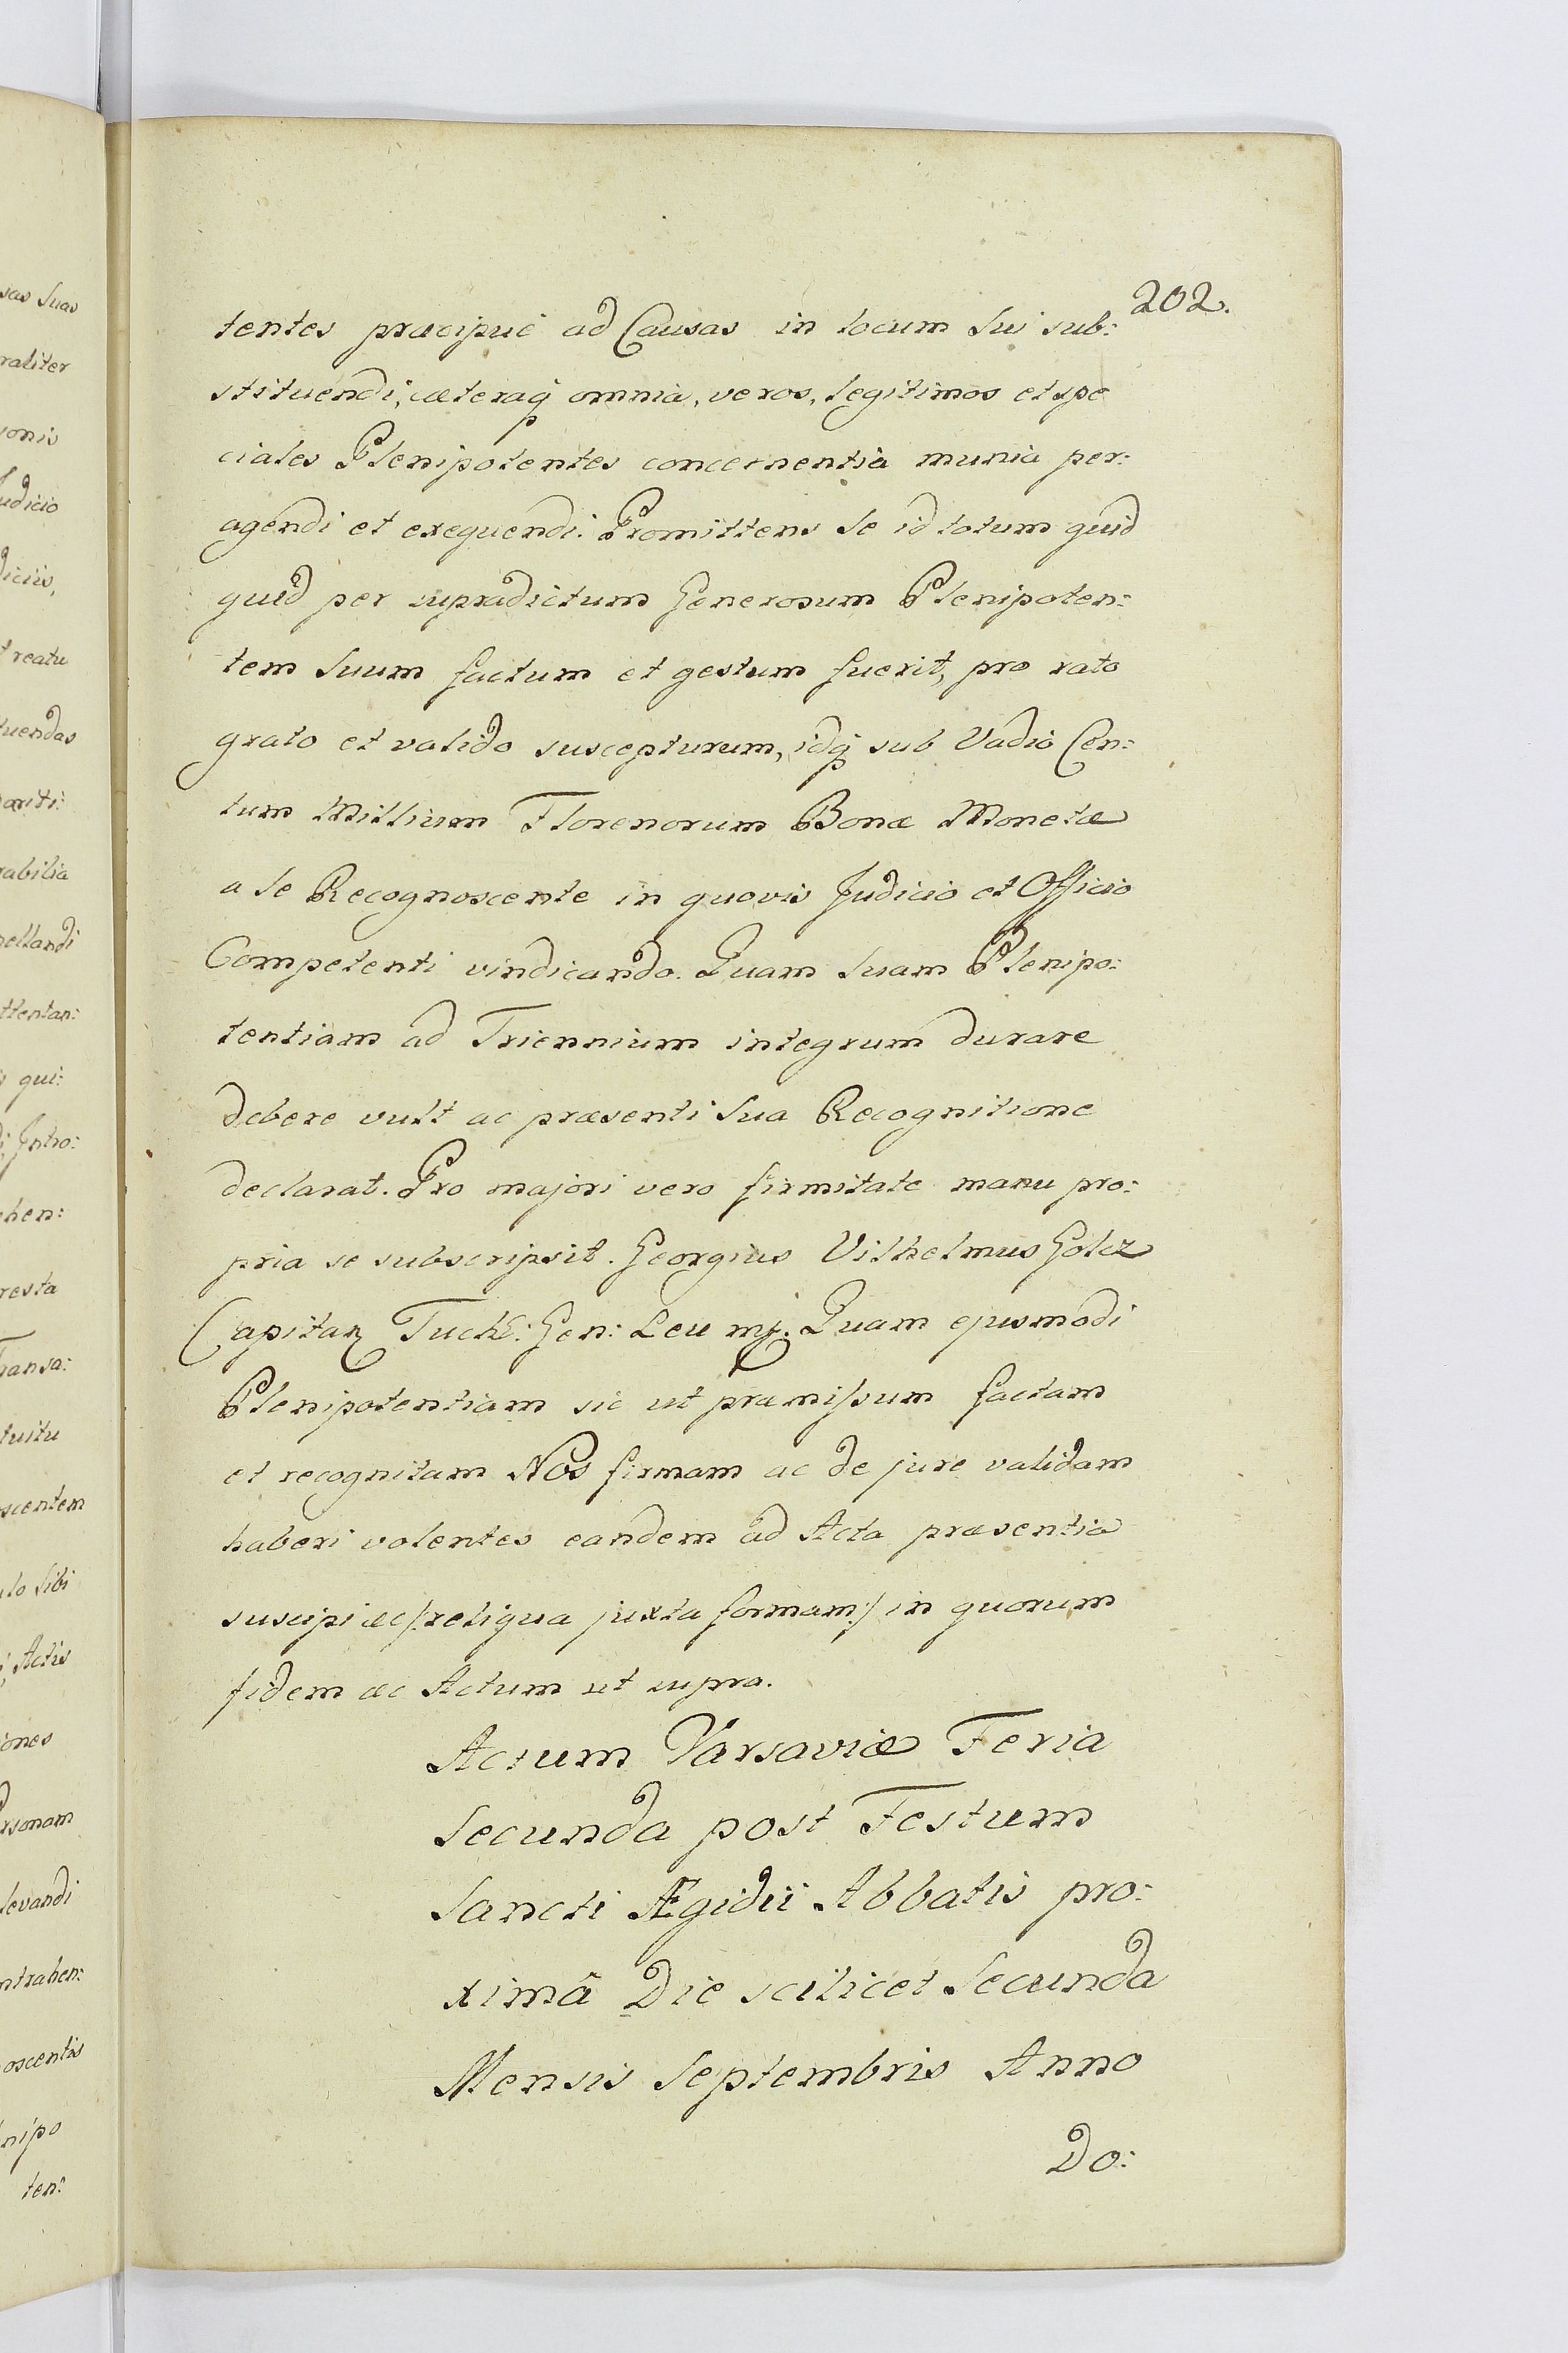 202.
tentes præcipué ad Causas in locum Sui sub:
stituendi, cæteraq̃ omnia, veros, legitimos et spe
ciales Plenipotentes concernentia munia per:
agendi et exequendi. Promittens Se id totum quid
quid per supradictum Generosum Plenipoten:
tem Suum factum et gestum fuerit, pro rato
grato et valido suscepturum, idq̃ sub Vadio Cen:
tum Millium Florenorum Bonæ Monetæ
a Se Recognoscente in quovis Judicio et Officio
Competenti vindicando. Quam Suam Plenipo:
tentiam ad Triennium integrum durare
debere vult ac præsenti Sua Recognitione
declarat. Pro majori vero firmitate manu pro:
pria se subscripsit. Georgius Vilhelmus Goltz
Capitan Tuch: Gen: Leu mj. Quam ejusmodi
Plenipotentiam sic ut præmissum factam
et recognitam Nos firmam ac de jure validam
haberi volentes eandem ad Acta præsentia
suscipi ac /:reliqua juxta formam:/ in quorum
fidem ac Actum ut supra.
Actum Varsaviæ Feria
Secunda post Festum
Sancti Ægidii Abbatis pro:
ximâ Die scilicet Secunda
Mensis Septembris Anno
Do:
sas Suas
raliter
onis
Judicio
diciis,
t reatu
tuendas
rabilia
pellandi
ttentan:
s qui:
di, Intro:
hen:
resta
Transa:
tuitu
scentem
lo Sibi
Actis
iones
rsonam
levandi
ntrahen:
oscentis
nipo
ten: